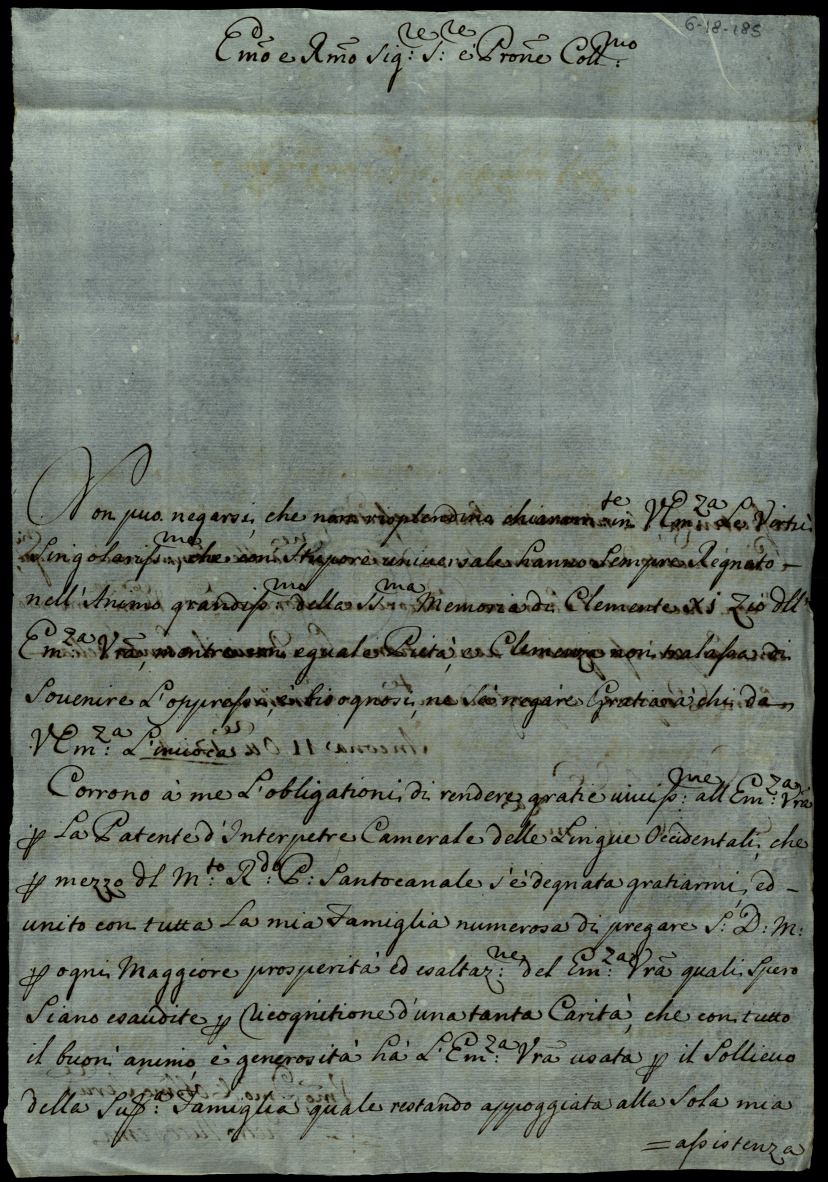 6-18-185
Emo e Rmo Sig:re S:re e Prone Coll:mo
Non puo negarsi, che non risplendino chiaram:te in VEm:za Le Virtù
Singolariss:me che con Stupore universale hanno sempre Regnato -
nell'Animo grandiss:mo della Sta:ma Memoria di Clemente XI Zio dll'
Em:za Vrã, mentre con eguale Pietà, e Clemenza non tralassa di
Souenire L'oppressi, è bisognosi, ne sà negare Gratia à chi da
VEm:za L'inuoca
Corrono à me L'obligationi di rendere gratie uiuiss:me all'Em:za Vrã
p La Patente d'Interpetre Camerale delle Lingue Occidentali, che
p mezzo dl M:to R:do P: Santocanale s'è degnata gratiarmi, ed -
unito con tutta La mia Famiglia numerosa di pregare S: D: M:
p ogni Maggiore prosperità ed esaltaz:ne del Em:za Vrã quali Spero
Siano esaudite p Ricognitione d'una tanta Carità, che con tutto
il buon' animo, è generosità hà L'Em:za Vrã usata p il Sollieuo
della Sup:a Famiglia quale restando appoggiata alla Sola mia
=assistenza